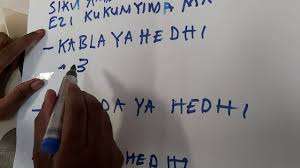 SIKU
EZI KUKUMYIMA
- KABLA YA HEDHI
3
DA YA HEDHI
HEDHI